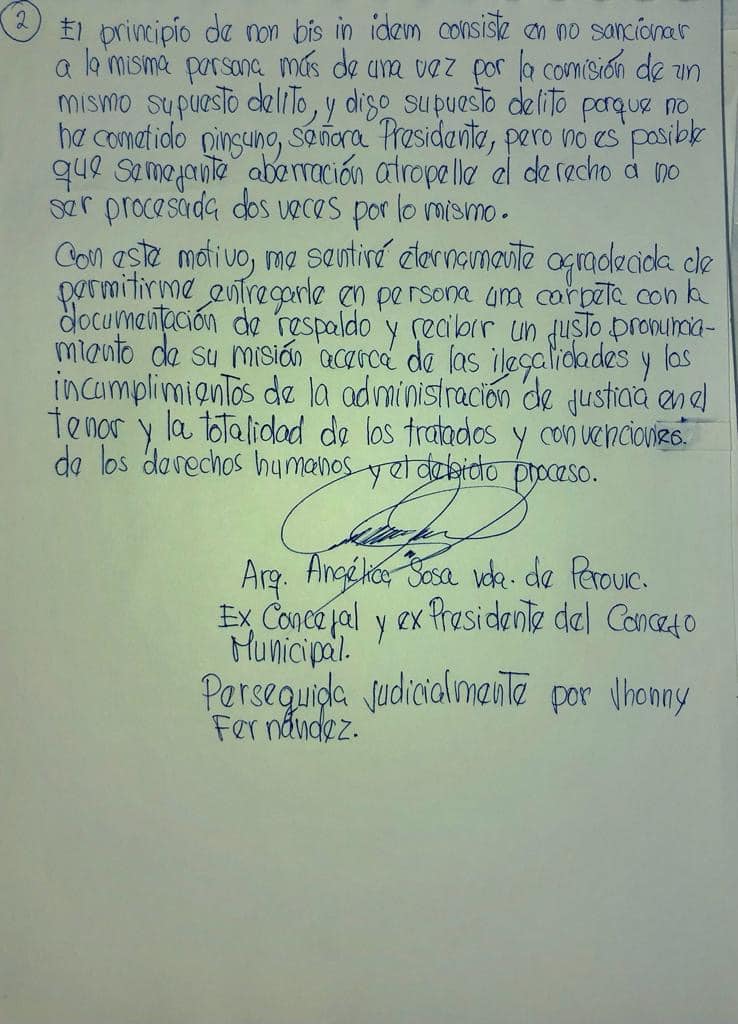 2
El principio de non bis in idem consiste en no sancionar
a la misma persona más de una vez por la comisión de un
mismo supuesto delito, y digo supuesto delito porque no
he cometido ninguno, señora Presidente, pero no es posible
que semejante aberración atropelle el derecho a no
ser procesada dos veces por lo mismo.
Con este motivo, me sentiré eternamente agradecida de
permitirme entregarle en persona una carpeta con la
documentación de respaldo y recibir un justo pronuncia-
miento de su misión acerca de las ilegalidades y los
incumplimientos de la administración de justicia en el
tenor y la totalidad de los tratados y convenciones.
de los derechos humanos y el debido proceso.
Arq. Angélica Sosa vda. de Perovic.
Ex Concejal y ex Presidente del Concejo
Municipal.
Perseguida judicialmente por Jhonny
Fernández.